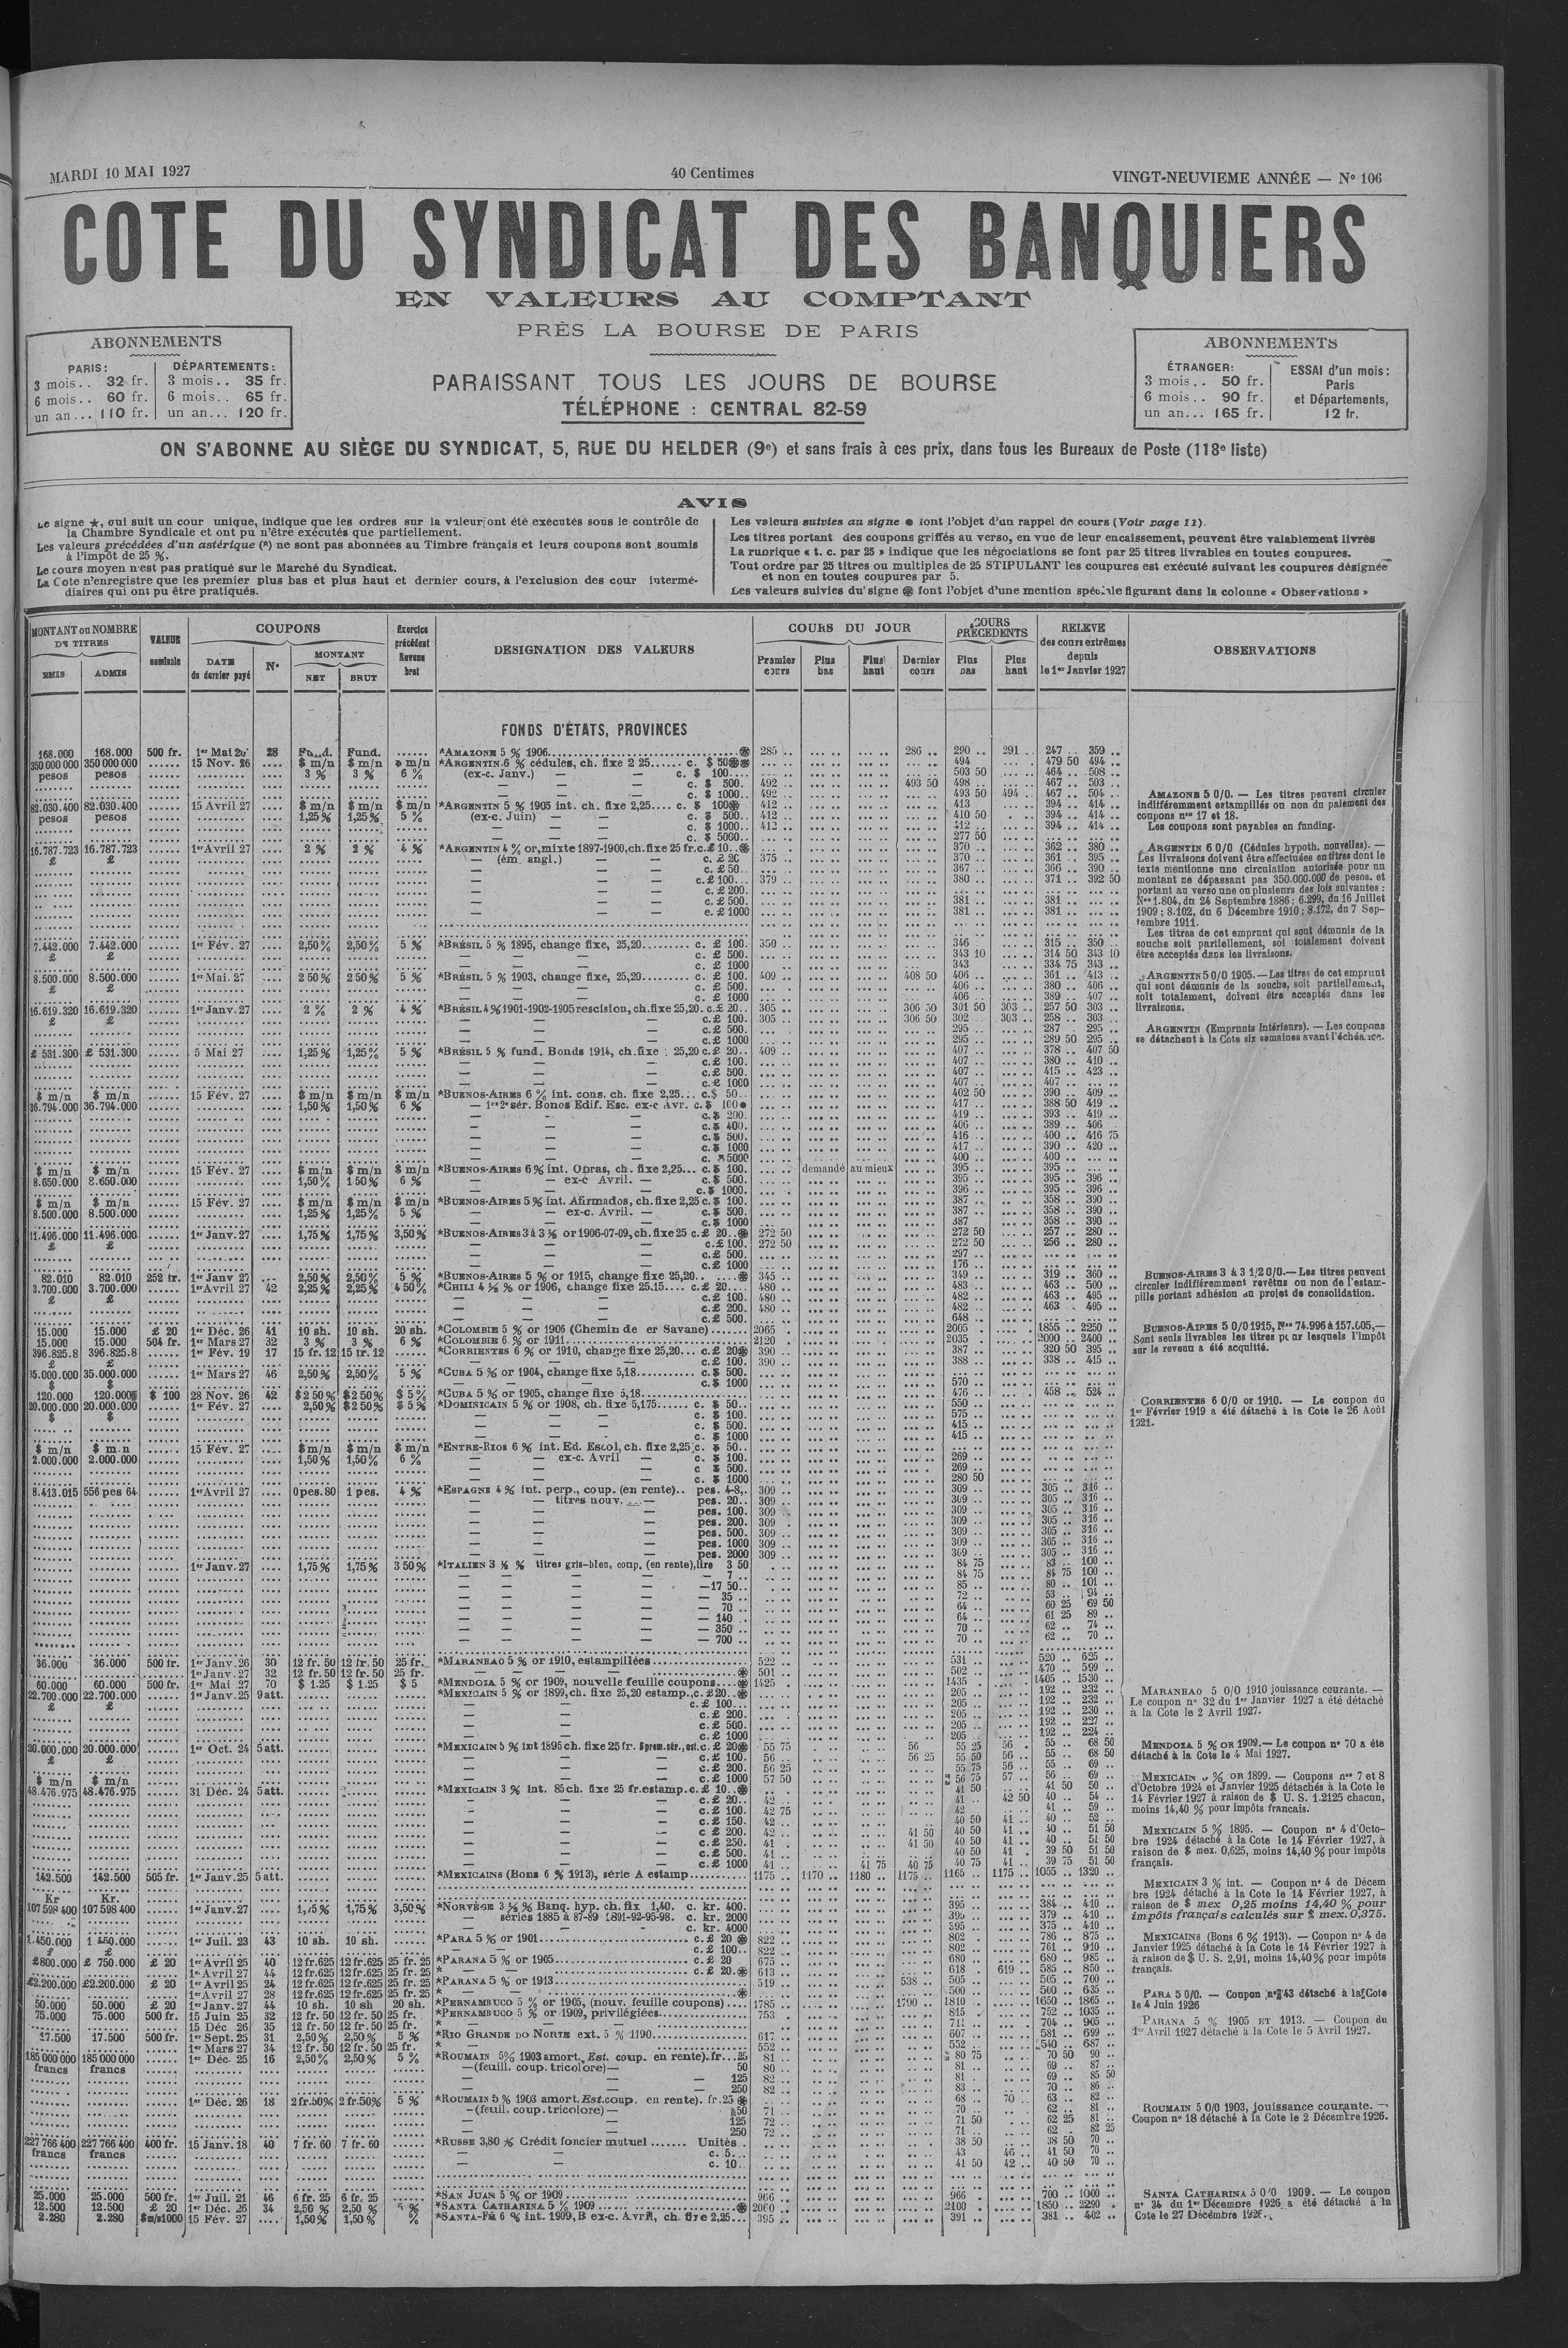 MARDI 10 MAI 1927
40 Centimes
VINGT-NEUVIEME ANNÉE — No 106
COTE DU SYNDICAT DES BANQUIERS
EN VALEURS AU COMPTANT
PRÈS LA BOURSE DE PARIS
PARAISSANT TOUS LES JOURS DE BOURSE
TÉLÉPHONE : CENTRAL 82-59
ABONNEMENTS
PARIS: DÉPARTEMENTS:
3 mois.. 32 fr. 3 mois.. 35 fr.
6 mois.. 60 fr. 6 mois.. 65 fr.
un an... 110 fr. un an... 120 fr.
ABONNEMENTS
ÉTRANGER: ESSAI d'un mois:
3 mois.. 50 fr. Paris
6 mois.. 90 fr. et Départements,
un an... 165 fr. 12 fr.
ON S'ABONNE AU SIÈGE DU SYNDICAT, 5, RUE DU HELDER (9e) et sans frais à ces prix, dans tous les Bureaux de Poste (118e liste)
AVIS
Le signe ★, qui suit un cour unique, indique que les ordres sur la valeur ont été exécutés sous le contrôle de
la Chambre Syndicale et ont pu n'être exécutés que partiellement.
Les valeurs précédées d'un astérique (*) ne sont pas abonnées au Timbre français et leurs coupons sont soumis
à l'impôt de 25 %.
Le cours moyen n'est pas pratiqué sur le Marché du Syndicat.
La Cote n'enregistre que les premier plus bas et plus haut et dernier cours, à l'exclusion des cour intermé-
diaires qui ont pu être pratiqués.
Les valeurs suivies au signe ● font l'objet d'un rappel de cours (Voir page 11).
Les titres portant des coupons griffés au verso, en vue de leur encaissement, peuvent être valablement livrés
La rubrique « t. c. par 25 » indique que les négociations se font par 25 titres livrables en toutes coupures.
Tout ordre par 25 titres ou multiples de 25 STIPULANT les coupures est exécuté suivant les coupures désignée
et non en toutes coupures par 5.
Les valeurs suivies du signe ֎ font l'objet d'une mention spéciale figurant dans la colonne « Observations »
MONTANT ou NOMBRE DE TITRES
EMIS ADMIS
VALEUR nominale
COUPONS
DATE du dernier payé
No
MONTANT
NET BRUT
Exercice précédent Revenu brut
DESIGNATION DES VALEURS
COURS DU JOUR
Premier cours Plus bas Plus haut Dernier cours
COURS PRÉCÉDENTS
Plus bas Plus haut
RELEVE des cours extrêmes depuis le 1er Janvier 1927
OBSERVATIONS
FONDS D'ÉTATS, PROVINCES
168.000 168.000 500 fr. 28 Fund. *AMAZONE 5 % 1906 285 .. 286 .. 290 .. 291 .. 247 .. 359 ..
350 000 000 350 000 000 15 Nov. 26 $ m/n $ m/n *ARGENTIN 6 % cédules, ch. fixe 2 25 c. $ 50 494 479 50 494 ..
pesos pesos 3 % 3 % 6 % (ex-c. Janv.) — — c. $ 100 503 50 464 .. 508 ..
c. $ 500. 492 .. 493 50 498 .. 467 .. 503 ..
c. $ 1000.. 492 .. 493 50 494 .. 467 .. 504 ..
82.030.400 82.030.400 15 Avril 27 $ m/n $ m/n $ m/n *ARGENTIN 5 % 1905 int. ch. fixe 2,25.... c. $ 100 412 .. 413 394 .. 414 ..
pesos pesos 1,25% 1,25% 5 % (ex-c. Juin) — — c. $ 500.. 412 .. 410 50 394 .. 414 ..
c. $ 1000.. 412 .. 412 .. 394 .. 414 ..
c. $ 5000.. 277 50
16.787.723 16.787.723 1er Avril 27 2 % 2 % 4 % *ARGENTIN 4 % or, mixte 1897-1900, ch. fixe 25 fr. c. £ 10 370 .. 362 .. 380 ..
£ £ — (ém. angl.) — — c. £ 20 375 .. 370 .. 361 .. 395 ..
c. £ 50.. 367 .. 366 .. 390 ..
c. £ 100... 379 .. 380 .. 371 .. 392 50
c. £ 200.
c. £ 500. 381 .. 381 ..
c. £ 1000 381 .. 381 ..
7.442.000 7.442.000 1er Fév. 27 2,50% 2,50% 5 % *BRÉSIL 5 % 1895, change fixe, 25,20 c. £ 100. 350 .. 346 315 .. 350 ..
£ £ c. £ 500. 343 10 314 50 343 10
c. £ 1000 343 334 75 343 ..
8.500.000 8.500.000 1er Mai. 27 2 50% 2 50% 5 % *BRÉSIL 5 % 1903, change fixe, 25,20 c. £ 100. 409 .. 408 50 406 .. 361 .. 413 ..
£ £ c. £ 500. 406 .. 380 .. 406 ..
c. £ 1000 406 .. 389 .. 407 ..
16.619.320 16.619.320 1er Janv. 27 2 % 2 % 4 % *BRÉSIL 4 % 1901-1902-1905 rescision, ch. fixe 25,20. c. £ 20.. 305 .. 306 50 301 50 303 .. 257 50 303 ..
£ £ c. £ 100. 305 .. 306 50 302 .. 303 .. 258 .. 303 ..
c. £ 500. 295 .. 287 .. 295 ..
c. £ 1000 295 .. 289 50 295 ..
£ 531.300 £ 531.300 5 Mai 27 1,25% 1,25% 5 % *BRÉSIL 5 % fund. Bonds 1914, ch. fixe : 25,20 c. £ 20.. 409 .. 407 .. 378 .. 407 50
c. £ 100. 407 .. 380 .. 410 ..
c. £ 500. 407 .. 415 .. 423 ..
c. £ 1000 407 .. 407 ..
$ m/n $ m/n 15 Fév. 27 $ m/n $ m/n $ m/n *BUENOS-AIRES 6 % int. cons. ch. fixe 2,25... c. $ 50.. 402 50 390 .. 409 ..
36.794.000 36.794.000 1,50% 1,50% 6 % — 1re 2e sér. Bonos Edif. Esc. ex-c Avr. c. $ 100 ● 417 .. 388 50 419 ..
c. $ 200. 419 .. 393 .. 419 ..
c. $ 400. 406 .. 389 .. 406
c. $ 500. 416 .. 400 .. 416 75
c. $ 1000 417 .. 390 .. 420 ..
c. $ 5000 400 .. 400 ..
$ m/n $ m/n 15 Fév. 27 $ m/n $ m/n $ m/n *BUENOS-AIRES 6 % int. Obras, ch. fixe 2,25... c. $ 100. demandé au mieux 395 .. 395 ..
8.650.000 8.650.000 1,50% 1 50% 6 % — ex-c Avril. — c. $ 500. 395 .. 395 .. 396 ..
c. $ 1000. 396 .. 395 .. 396 ..
$ m/n $ m/n 15 Fév. 27 $ m/n $ m/n $ m/n *BUENOS-AIRES 5 % int. Afirmados, ch. fixe 2,25 c. $ 100. 387 .. 358 .. 390 ..
8.500.000 8.500.000 1,25% 1,25% 5 % — ex-c. Avril. — c. $ 500. 387 .. 358 .. 390 ..
c. $ 1000 387 358 .. 390 ..
11.496.000 11.496.000 1er Janv. 27 1,75% 1,75% 3,50% *BUENOS-AIRES 3 à 3 ½ or 1906-07-09, ch. fixe 25 c. £ 20.. 272 50 272 50 257 .. 280 ..
£ £ c. £ 100. 272 50 272 50 256 .. 280 ..
c. £ 500. 297 ..
c. £ 1000 176 ..
82.010 82.010 252 fr. 1er Janv 27 2,50% 2,50% 5 % *BUENOS-AIRES 5 % or 1915, change fixe 25,20.. 345 .. 349 .. 319 .. 360 ..
3.700.000 3.700.000 1er Avril 27 42 2,25% 2,25% 4 50% *CHILI 4 ½ % or 1906, change fixe 25.15.... c. £ 20 480 .. 483 .. 463 .. 500 ..
£ £ c. £ 100. 480 .. 482 .. 463 .. 495 ..
c. £ 200. 480 .. 482 .. 463 .. 495 ..
c. £ 500. 648 ..
15.000 15.000 £ 20 1er Déc. 26 41 10 sh. 10 sh. 20 sh. *COLOMBIE 5 % or 1906 (Chemin de er Savane) 2065 2005 .. 1855 .. 2250 ..
15.000 15.000 504 fr. 1er Mars 27 32 3 % 3 % 6 % *COLOMBIE 6 % or 1911 2120 . 2035 . 2000 .. 2400 ..
396.825.8 396.825.8 1er Fév. 19 17 15 fr. 12 15 fr. 12 *CORRIENTES 6 % or 1910, change fixe 25,20... c. £ 20 390 .. 387 .. 320 50 395 ..
£ £ c. £ 100. 390 .. 388 .. 338 .. 415 ..
35.000.000 35.000.000 1er Mars 27 46 2,50% 2,50% 5 % *CUBA 5 % or 1904, change fixe 5,18 c. $ 500.
$ $ c. $ 1000 570 ..
120.000 120.000 $ 100 28 Nov. 26 42 $ 2 50% $ 2 50% $ 5 % *CUBA 5 % or 1905, change fixe 5,18 476 .. 458 .. 524 ..
20.000.000 20.000.000 1er Fév. 27 2,50% $ 2 50% $ 5 % *DOMINICAIN 5 % or 1908, ch. fixe 5,175 c. $ 50.. 550 ..
$ $ c. $ 100. 575 ..
c. $ 500. 415 ..
c. $ 1000 415 ..
$ m/n $ m.n 15 Fév. 27 $ m/n $ m/n $ m/n *ENTRE-RIOS 6 % int. Ed. Escol, ch. fixe 2,25 c. $ 50..
2.000.000 2.000.000 1,50% 1,50% 6 % — ex-c. Avril — c. $ 100. 269 ..
c $ 500. 269 ..
c. $ 1000 280 50
8.413.015 556 pes 64 1er Avril 27 0 pes. 80 1 pes. 4 % *ESPAGNE 4 % int. perp., coup. (en rente).. pes. 4-8,. 309 .. 309 .. 305 .. 316 ..
— titres nouv. — pes. 20.. 309 .. 309 .. 305 .. 316 ..
pes. 100. 309 .. 309 .. 305 .. 316 ..
pes. 200. 309 .. 309 .. 305 .. 316 ..
pes. 500. 309 .. 309 .. 305 .. 316 ..
pes. 1000 309 .. 309 .. 305 .. 316 ..
pes. 2000 309 .. 309 .. 305 .. 316 ..
1er Janv. 27 1,75% 1,75% 3 50% *ITALIEN 3 ½ % titres gris-bleu, coup. (en rente), lire 3 50 84 75 83 .. 100 ..
— 7 .. 84 75 84 75 100 ..
— 17 50.. 85 .. 80 .. 101 ..
— 35 .. 72 .. 53 .. 94 ..
— 70 .. 64 .. 60 25 69 50
— 140 .. 64 .. 61 25 89 ..
— 350 .. 70 .. 62 .. 74 ..
— 700 .. 70 .. 62 .. 70 ..
36.000 36.000 500 fr. 1er Janv. 26 30 12 fr. 50 12 fr. 50 25 fr. *MARANHAO 5 % or 1910, estampillées 522 .. 531 .. 520 .. 625 ..
1er Janv. 27 32 12 fr. 50 12 fr. 50 25 fr. 501 .. 502 .. 470 .. 599 ..
60.000 60.000 500 fr. 1er Mai 27 70 $ 1.25 $ 1.25 $ 5 *MENDOZA 5 % or 1909, nouvelle feuille coupons 1425 1435 .. 1405 .. 1530 ..
22.700.000 22.700.000 1er Janv. 25 9 att. *MEXICAIN 5 % or 1899, ch. fixe 25,20 estamp., c. £ 20.. 205 .. 192 .. 232 ..
£ £ c. £ 100... 205 .. 192 .. 232 ..
c. £ 200. 205 .. 192 .. 230 ..
c. £ 500. 205 .. 192 .. 227 ..
c. £ 1000 205 .. 192 .. 224 ..
20.000.000 20.000.000 1er Oct. 24 5 att. *MEXICAIN 5 % int 1895 ch. fixe 25 fr. c. £ 20 55 75 56 55 25 56 .. 55 .. 68 50
£ £ c. £ 100. 56 .. 56 25 55 50 56 .. 55 .. 68 50
c. £ 200. 56 25 55 75 56 .. 55 .. 69 ..
$ m/n $ m/n c. £ 1000 57 50 56 75 57 .. 56 .. 69 ..
48.476.975 48.476.975 31 Déc. 24 5 att. *MEXICAIN 3 % int. 85 ch. fixe 25 fr. estamp. c. £ 10.. 41 50 41 50 50 ..
c. £ 20.. 42 .. 41 .. 42 50 40 .. 54 ..
c. £ 100. 42 75 42 .. 41 .. 59 ..
c. £ 150. 42 .. 40 50 41 .. 40 .. 52 ..
c £ 200. 42 .. 41 50 40 50 41 .. 40 .. 51 50
c. £ 250. 41 .. 41 50 40 50 41 .. 40 .. 51 50
c. £ 500. 41 .. 40 50 41 . 39 50 51 50
c. £ 1000 41 .. 41 75 40 75 40 75 41 .. 39 75 51 50
142.500 142.500 505 fr. 1er Janv. 25 5 att. *MEXICAINS (Bons 6 % 1913), série A estamp 1175 .. 1170 .. 1180 .. 1175 .. 1165 .. 1175 .. 1055 .. 1320 ..
Kr Kr.
107 598 400 107 598 400 1er Janv. 27 1,75% 1,75% 3,50% *NORVÈGE 3 ½ % Banq. hyp. ch. fix 1,40. c. kr. 400. 395 .. 384 .. 410 ..
— séries 1885 à 87-89 1891-92-95-98. c. kr. 2000 395 .. 379 .. 410 ..
c. kr. 4000 395 .. 375 .. 410 ..
1.450.000 1 450.000 1er Juil. 23 43 10 sh. 10 sh. *PARA 5 % or 1901 c. £ 20 822 .. 802 786 .. 875 ..
£ £ c. £ 100.. 822 .. 802 .. 761 .. 910 ..
£800.000 £ 750.000 £ 20 1er Avril 25 40 12 fr.625 12 fr.625 25 fr. 25 *PARANA 5 % or 1905 c. £ 20 675 .. 680 .. 680 .. 985 ..
1er Avril 27 44 12 fr.625 12 fr.625 25 fr. 25 * — c. £ 20. 613 .. 618 .. 619 .. 585 .. 850 ..
£2.200.000 £2.200.000 £ 20 1er Avril 25 24 12 fr.625 12 fr.625 25 fr. 25 *PARANA 5 % or 1913 519 .. 538 .. 505 .. 505 .. 700 ..
1er Avril 27 28 12 fr.625 12 fr.625 25 fr. 25 * — 500 .. 500 .. 635 ..
50.000 50.000 £ 20 1er Janv. 27 44 10 sh. 10 sh 20 sh. *PERNAMBUCO 5 % or 1905, (nouv. feuille coupons) 1785 .. 1790 .. 1810 .. 1650 .. 1865 ..
75.000 75.000 500 fr. 15 Juin 25 32 12 fr. 50 12 fr. 50 25 fr. *PERNAMBUCO 5 % or 1909, privilégiées 753 .. 815 .. 752 .. 1035 ..
15 Déc 26 35 12 fr. 50 12 fr. 50 25 fr. * — 704 .. 905 ..
17.500 17.500 500 fr. 1er Sept. 25 31 2,50% 2,50% 5 % *RIO GRANDE DO NORTE ext. 5 % 1190 617 .. 607 .. 581 .. 699 ..
1er Mars 27 34 12 fr. 50 12 fr. 50 25 fr. * — 552 .. 552 .. 540 .. 687 ..
185 000 000 185 000 000 1er Déc. 25 16 2,50% 2,50% 5 % *ROUMAIN 5% 1903 amort. Est. coup. en rente). fr. 25 81 .. 80 75 70 50 90 ..
francs francs — (feuill. coup. tricolore) — 50 80 .. 81 .. 69 .. 87 ..
125 82 .. 81 .. 69 .. 85 50
250 82 .. 83 .. 70 .. 86 ..
1er Déc. 26 18 2 fr.50% 2 fr.50% 5 % *ROUMAIN 5 % 1903 amort. Est. coup. en rente). fr. 25 68 .. 70 .. 63 .. 82 ..
— (feuil. coup. tricolore) — 50 71 .. 70 .. 62 .. 81 ..
125 72 .. 71 50 62 25 81 ..
250 72 .. 71 .. 62 .. 82 25
227 766 400 227 766 400 400 fr. 15 Janv. 18 40 7 fr. 60 7 fr. 60 *RUSSE 3,80 % Crédit foncier mutuel Unités.. 38 50 38 50 70 ..
francs francs c. 5... 43 46 .. 41 50 70 ..
c. 10.. 41 50 42 .. 40 50 70 ..
25.000 25.000 500 fr. 1er Juil. 21 46 6 fr. 25 6 fr. 25 *SAN JUAN 5 % or 1909 966 .. 966 .. 700 .. 1000 ..
12.500 12.500 £ 20 1er Déc. 26 34 2,50 % 2,50 % 5 % *SANTA CATHARINA 5 % 1909 2060 .. 2100 .. 1850 .. 2290 ..
2.280 2.280 $ m/n 1000 15 Fév. 27 1,50% 1,50% % *SANTA-FÉ 6 % int. 1909, B ex-c. Avril, ch. fixe 2,25... 395 .. 391 .. 381 .. 402 ..
AMAZONE 5 0/0. — Les titres peuvent circuler
indifféremment estampillés ou non du paiement des
coupons nos 17 et 18.
Les coupons sont payables en funding.
ARGENTIN 6 0/0 (Cédules hypoth. nouvelles). —
Les livraisons doivent être effectuées en titres dont le
texte mentionne une circulation autorisée pour un
montant ne dépassant pas 350.000.000 de pesos. et
portant au verso une ou plusieurs des lois suivantes :
Nos 1.804, du 24 Septembre 1886 ; 6.299, du 16 Juillet
1909 ; 8.102, du 6 Décembre 1910 ; 8.172, du 7 Sep-
tembre 1911.
Les titres de cet emprunt qui sont démunis de la
souche soit partiellement, soi totalement doivent
être acceptés dans les livraisons.
ARGENTIN 5 0/0 1905. — Les titres de cet emprunt
qui sont démunis de la souche, soit partiellement,
soit totalement, doivent être acceptés dans les
livraisons.
ARGENTIN (Emprunts Intérieurs). — Les coupons
se détachent à la Cote six semaines avant l'échéance.
BUENOS-AIRES 3 à 3 1/2 0/0. — Les titres peuvent
circuler indifféremment revêtus ou non de l'estam-
pille portant adhésion au projet de consolidation.
BUENOS-AIRES 5 0/0 1915, Nos 74.996 à 157.605, —
Sont seuls livrables les titres pour lesquels l'impôt
sur le revenu a été acquitté.
CORRIENTES 6 0/0 or 1910. — Le coupon du
1er Février 1919 a été détaché à la Cote le 26 Août
1921.
MARANHAO 5 0/0 1910 jouissance courante. —
Le coupon no 32 du 1er Janvier 1927 a été détaché
à la Cote le 2 Avril 1927.
MENDOZA 5 % OR 1909. — Le coupon no 70 a été
détaché à la Cote le 4 Mai 1927.
MEXICAIN % OR 1899. — Coupons nos 7 et 8
d'Octobre 1924 et Janvier 1925 détachés à la Cote le
14 Février 1927 à raison de $ U. S. 1.2125 chacun,
moins 14,40 % pour impôts français.
MEXICAIN 5 % 1895. — Coupon no 4 d'Octo-
bre 1924 détaché à la Cote le 14 Février 1927, à
raison de $ mex. 0,625, moins 14,40 % pour impôts
français.
MEXICAIN 3 % int. — Coupon no 4 de Décem
bre 1924 détaché à la Cote le 14 Février 1927, à
raison de $ mex 0,25 moins 14,40 % pour
impôts français calculés sur $ mex. 0,375.
MEXICAINS (Bons 6 % 1913). — Coupon no 4 de
Janvier 1925 détaché à la Cote le 14 Février 1927 à
à raison de $ U. S. 2,91, moins 14,40 % pour impôts
français.
PARA 5 0/0. — Coupon no 43 détaché à la Cote
le 4 Juin 1926
PARANA 5 % 1905 ET 1913. — Coupon du
1er Avril 1927 détaché à la Cote le 5 Avril 1927.
ROUMAIN 5 0/0 1903, jouissance courante. —
Coupon no 18 détaché à la Cote le 2 Décembre 1926.
SANTA CATHARINA 5 0/0 1909. — Le coupon
no 34 du 1er Décembre 1926 a été détaché à la
Cote le 27 Décembre 1926.